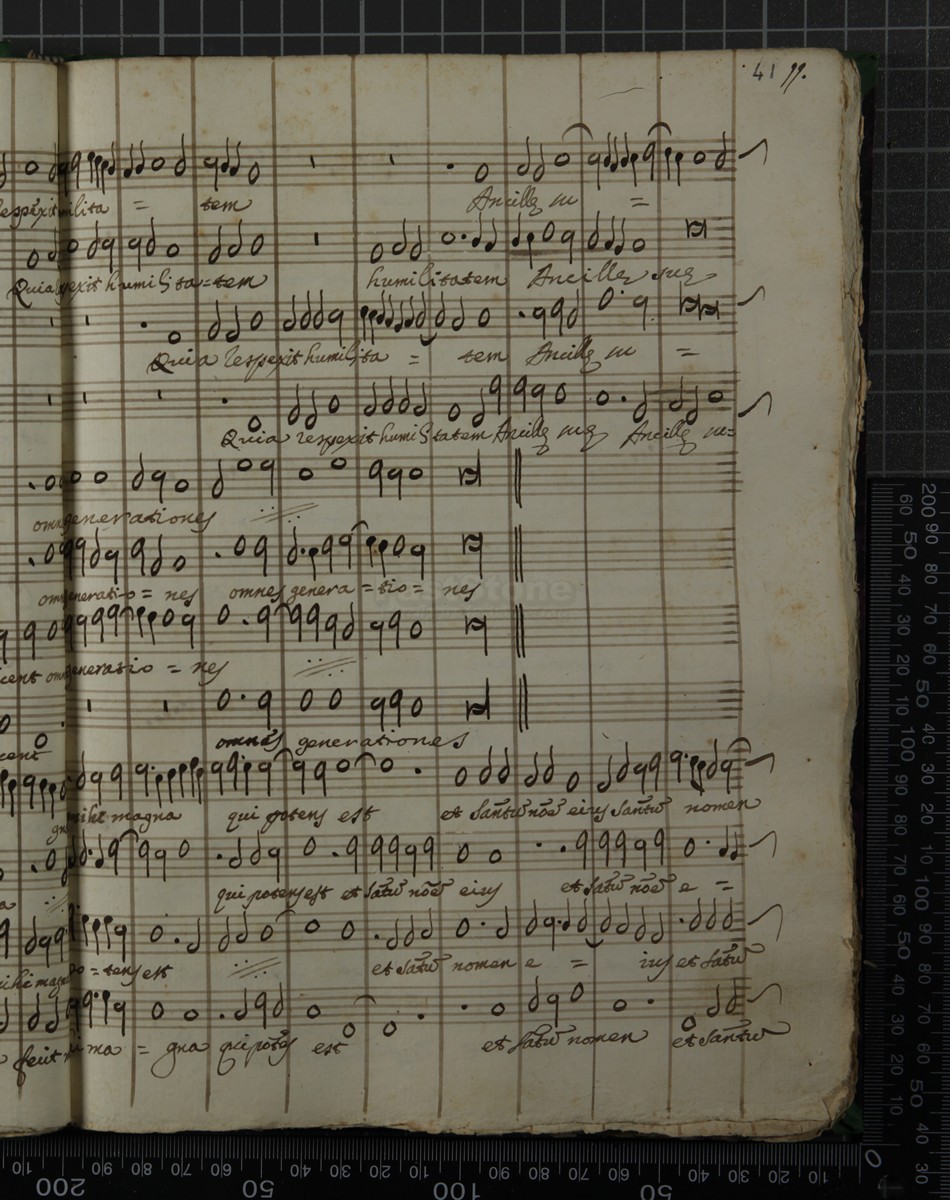 41 99.
respexit milita = tem Ancillę su =
Quia exit humilita=tem humilitatem Ancillę suę
Quia respexit humilita = tem Ancillę su =
Quia respexit humilitatem Ancillę suę Ancillę su=
omn generationes
omn neratio = nes omnes genera = tio = nes
cent omn generatio = nes
cent omnes generationes
mihi magna qui potens est et Sanctũ nõe eius Sanctũ nomen
qui potens est et Sãtũ nõe eius et Sãtũ nõe e =
ihi mag po = tens est et Sãtũ nomen e = ius et Sãtũ
fecit ma = gna qui potẽs est et Sãtũ nomen et Sanctũ